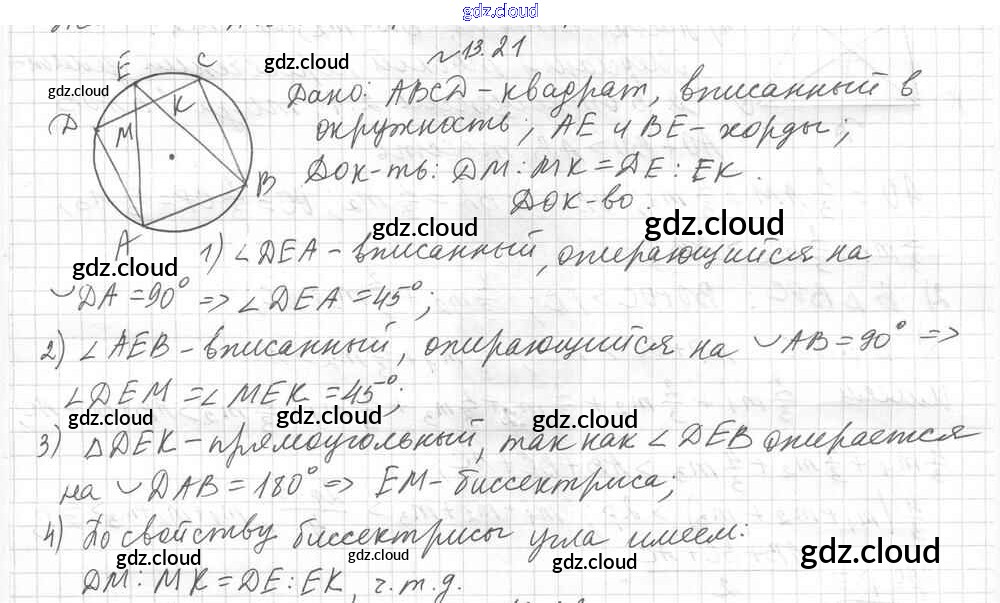 gdz.cloud
№13.21
E C gdz.cloud
gdz.cloud
D M K B A
Дано: ABCD - квадрат, вписанный в
окружность; AE и BE - хорды;
Док-ть: DM : MK = DE : EK.
Док-во.
gdz.cloud gdz.cloud
1) ∠DEA - вписанный, опирающийся на
gdz.cloud
◡DA = 90° => ∠DEA = 45°;
2) ∠AEB - вписанный, опирающийся на ◡AB = 90° =>
∠DEM = ∠MEK = 45°;
gdz.cloud gdz.cloud gdz.cloud
3) △DEK - прямоугольный, так как ∠DEB опирается
на ◡DAB = 180° => EM - биссектриса;
4) По свойству биссектрисы угла имеем:
gdz.cloud gdz.cloud gdz.cloud
DM : MK = DE : EK, ч.т.д.
gdz.cloud